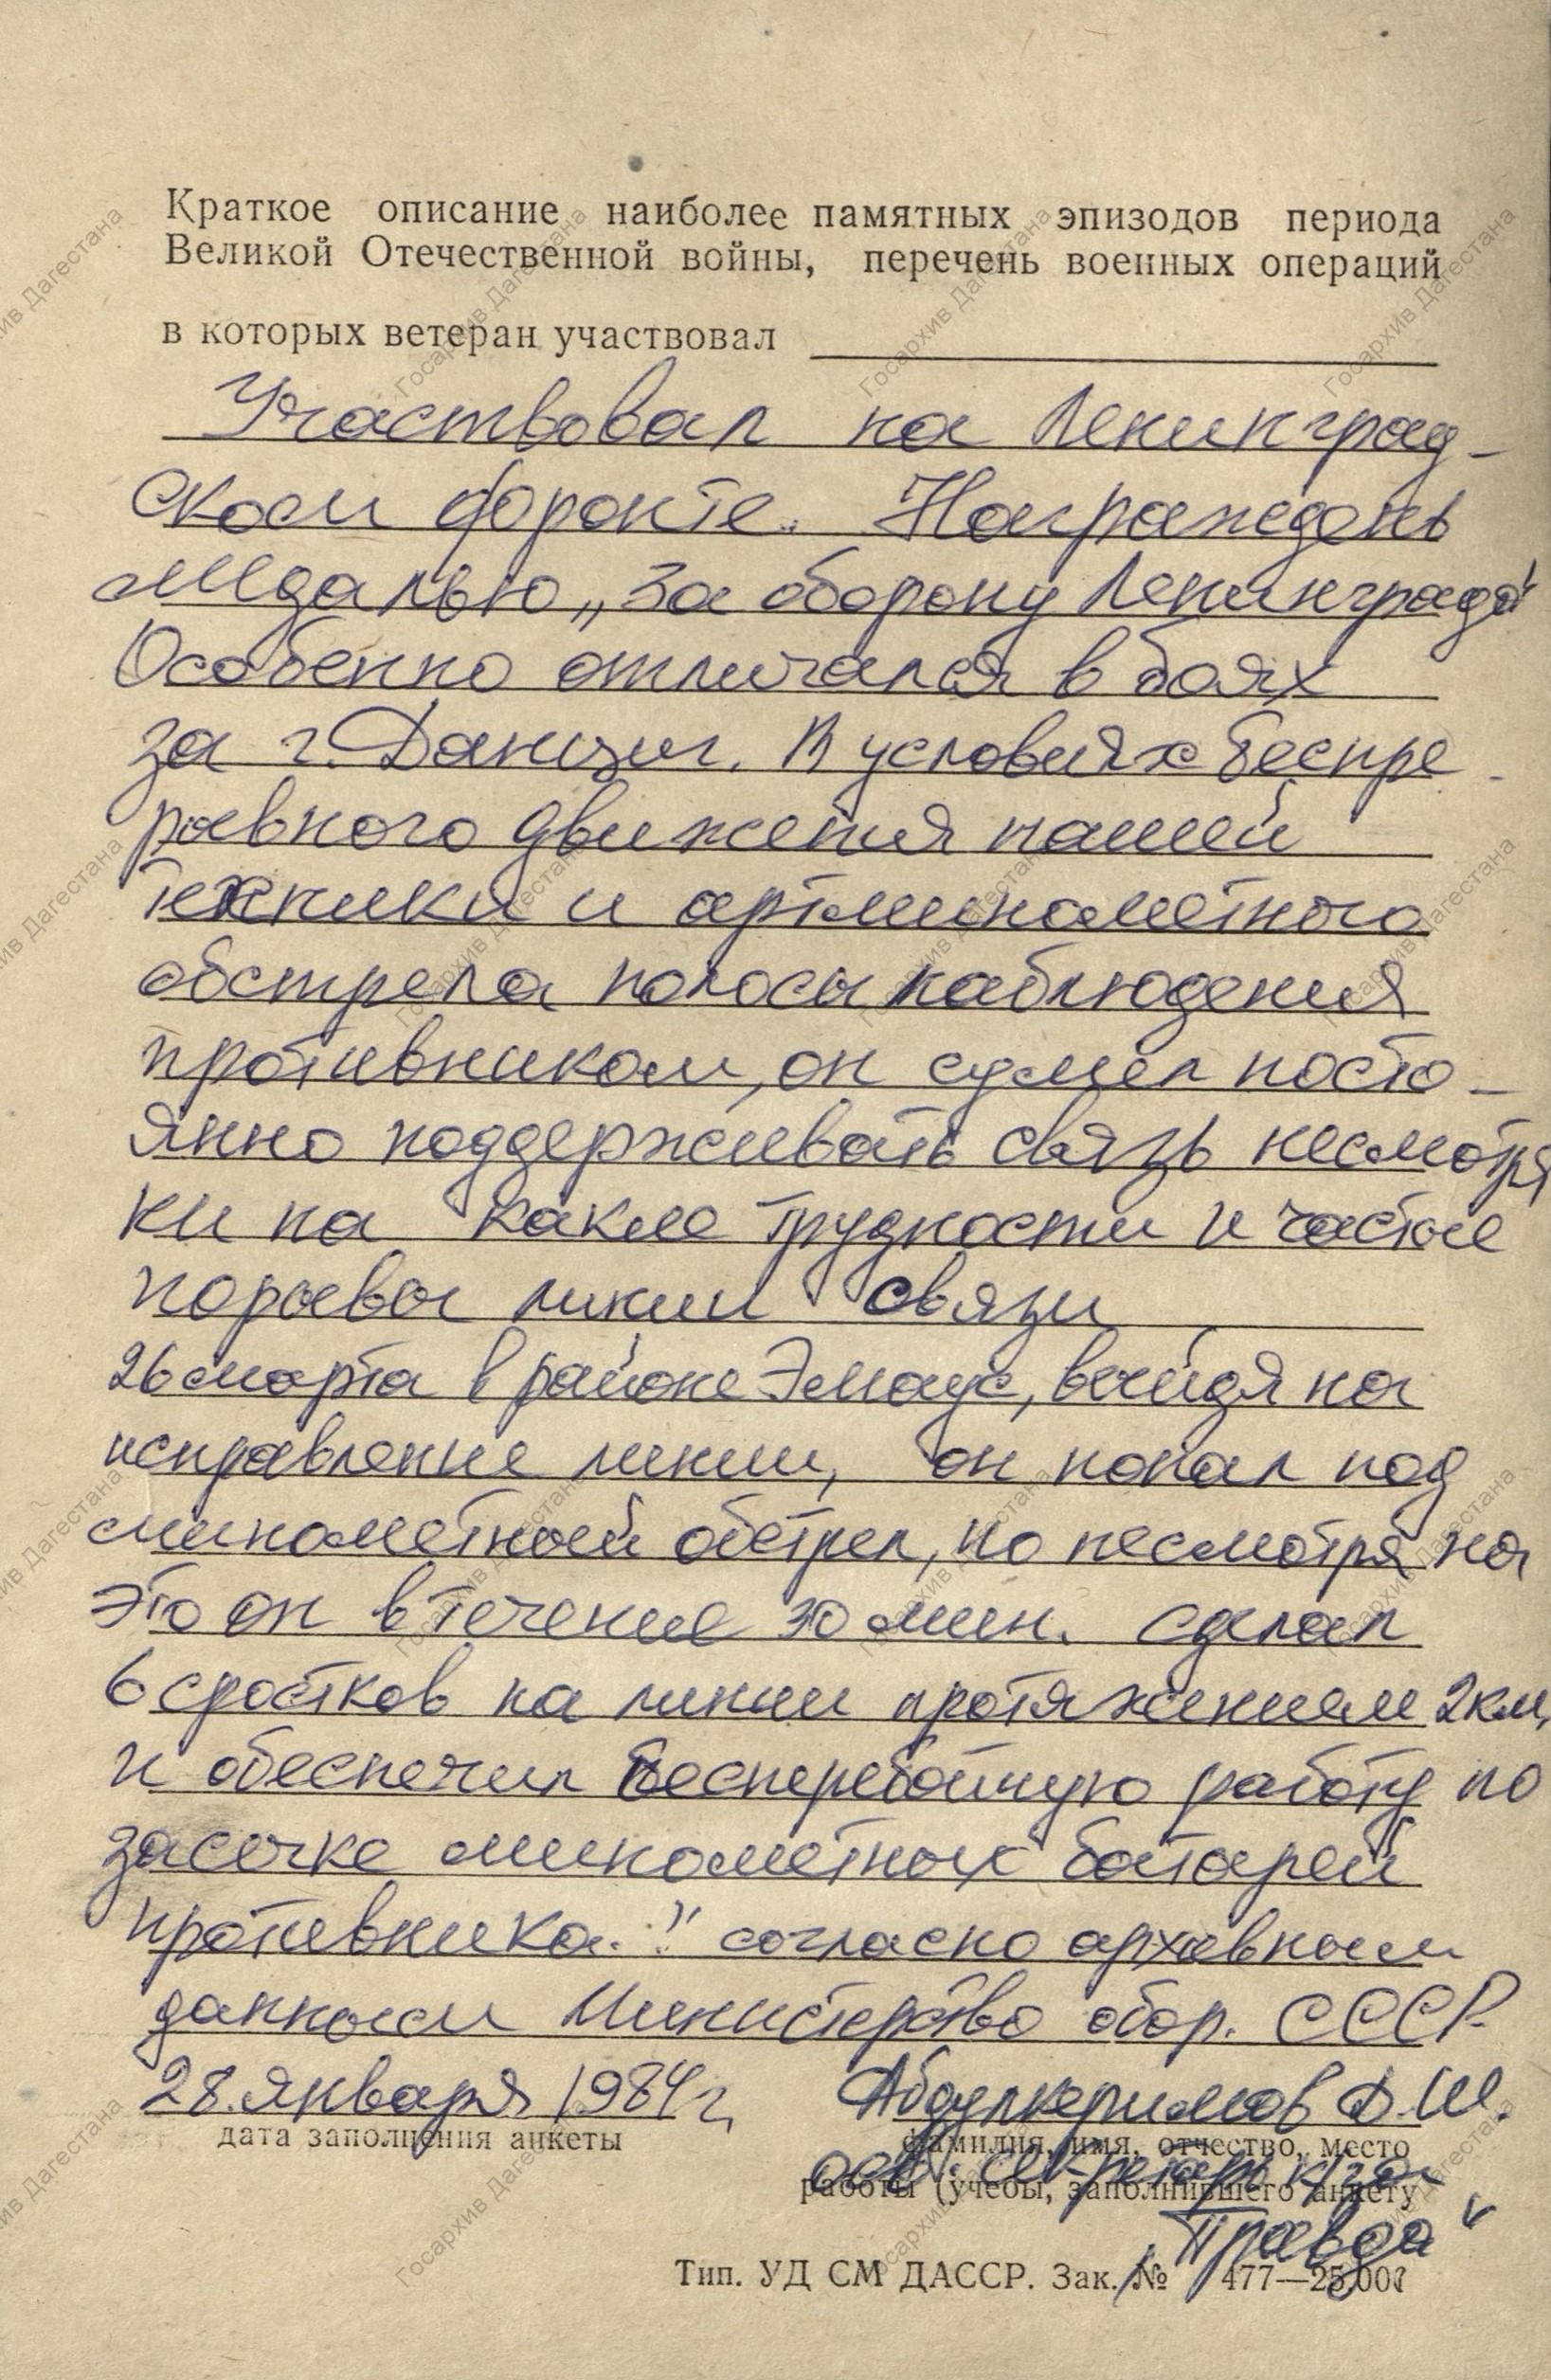 Краткое описание наиболее памятных эпизодов периода
Великой Отечественной войны, перечень военных операций
в которых ветеран участвовал
Участвовал на Ленинград-
ском фронте. Награждень
медалью „За оборону Ленинграда"
Особенно отличался в боях
за г. Данциг. В условиях беспре-
рывного движения нашей
техники и артминометного
обстрела полосы наблюдения
противником, он сумел посто-
янно поддерживать связь несмотря
ни на какие трудности и частые
порывы линии связи
26 марта в районе Эмаус, выйдя на
исправление линии, он попал под
минометный обстрел, но несмотря на
это он в течение 30 мин. сделал
6 сростков на линии протяжением 2 км,
и обеспечил бесперебойную работу по
засечке минометных батарей
противника." согласно архивным
данным Министерство обор. СССР.
28. января 1984 г.
Абдулкеримов Д.Ш.
дата заполнения анкеты
фамилия, имя, отчество, место
отв. секретарь к/за
работы (учебы, заполнившего анкету
„Правда"
Тип. УД СМ ДАССР. Зак. № 477—25.000
Госархив Дагестана